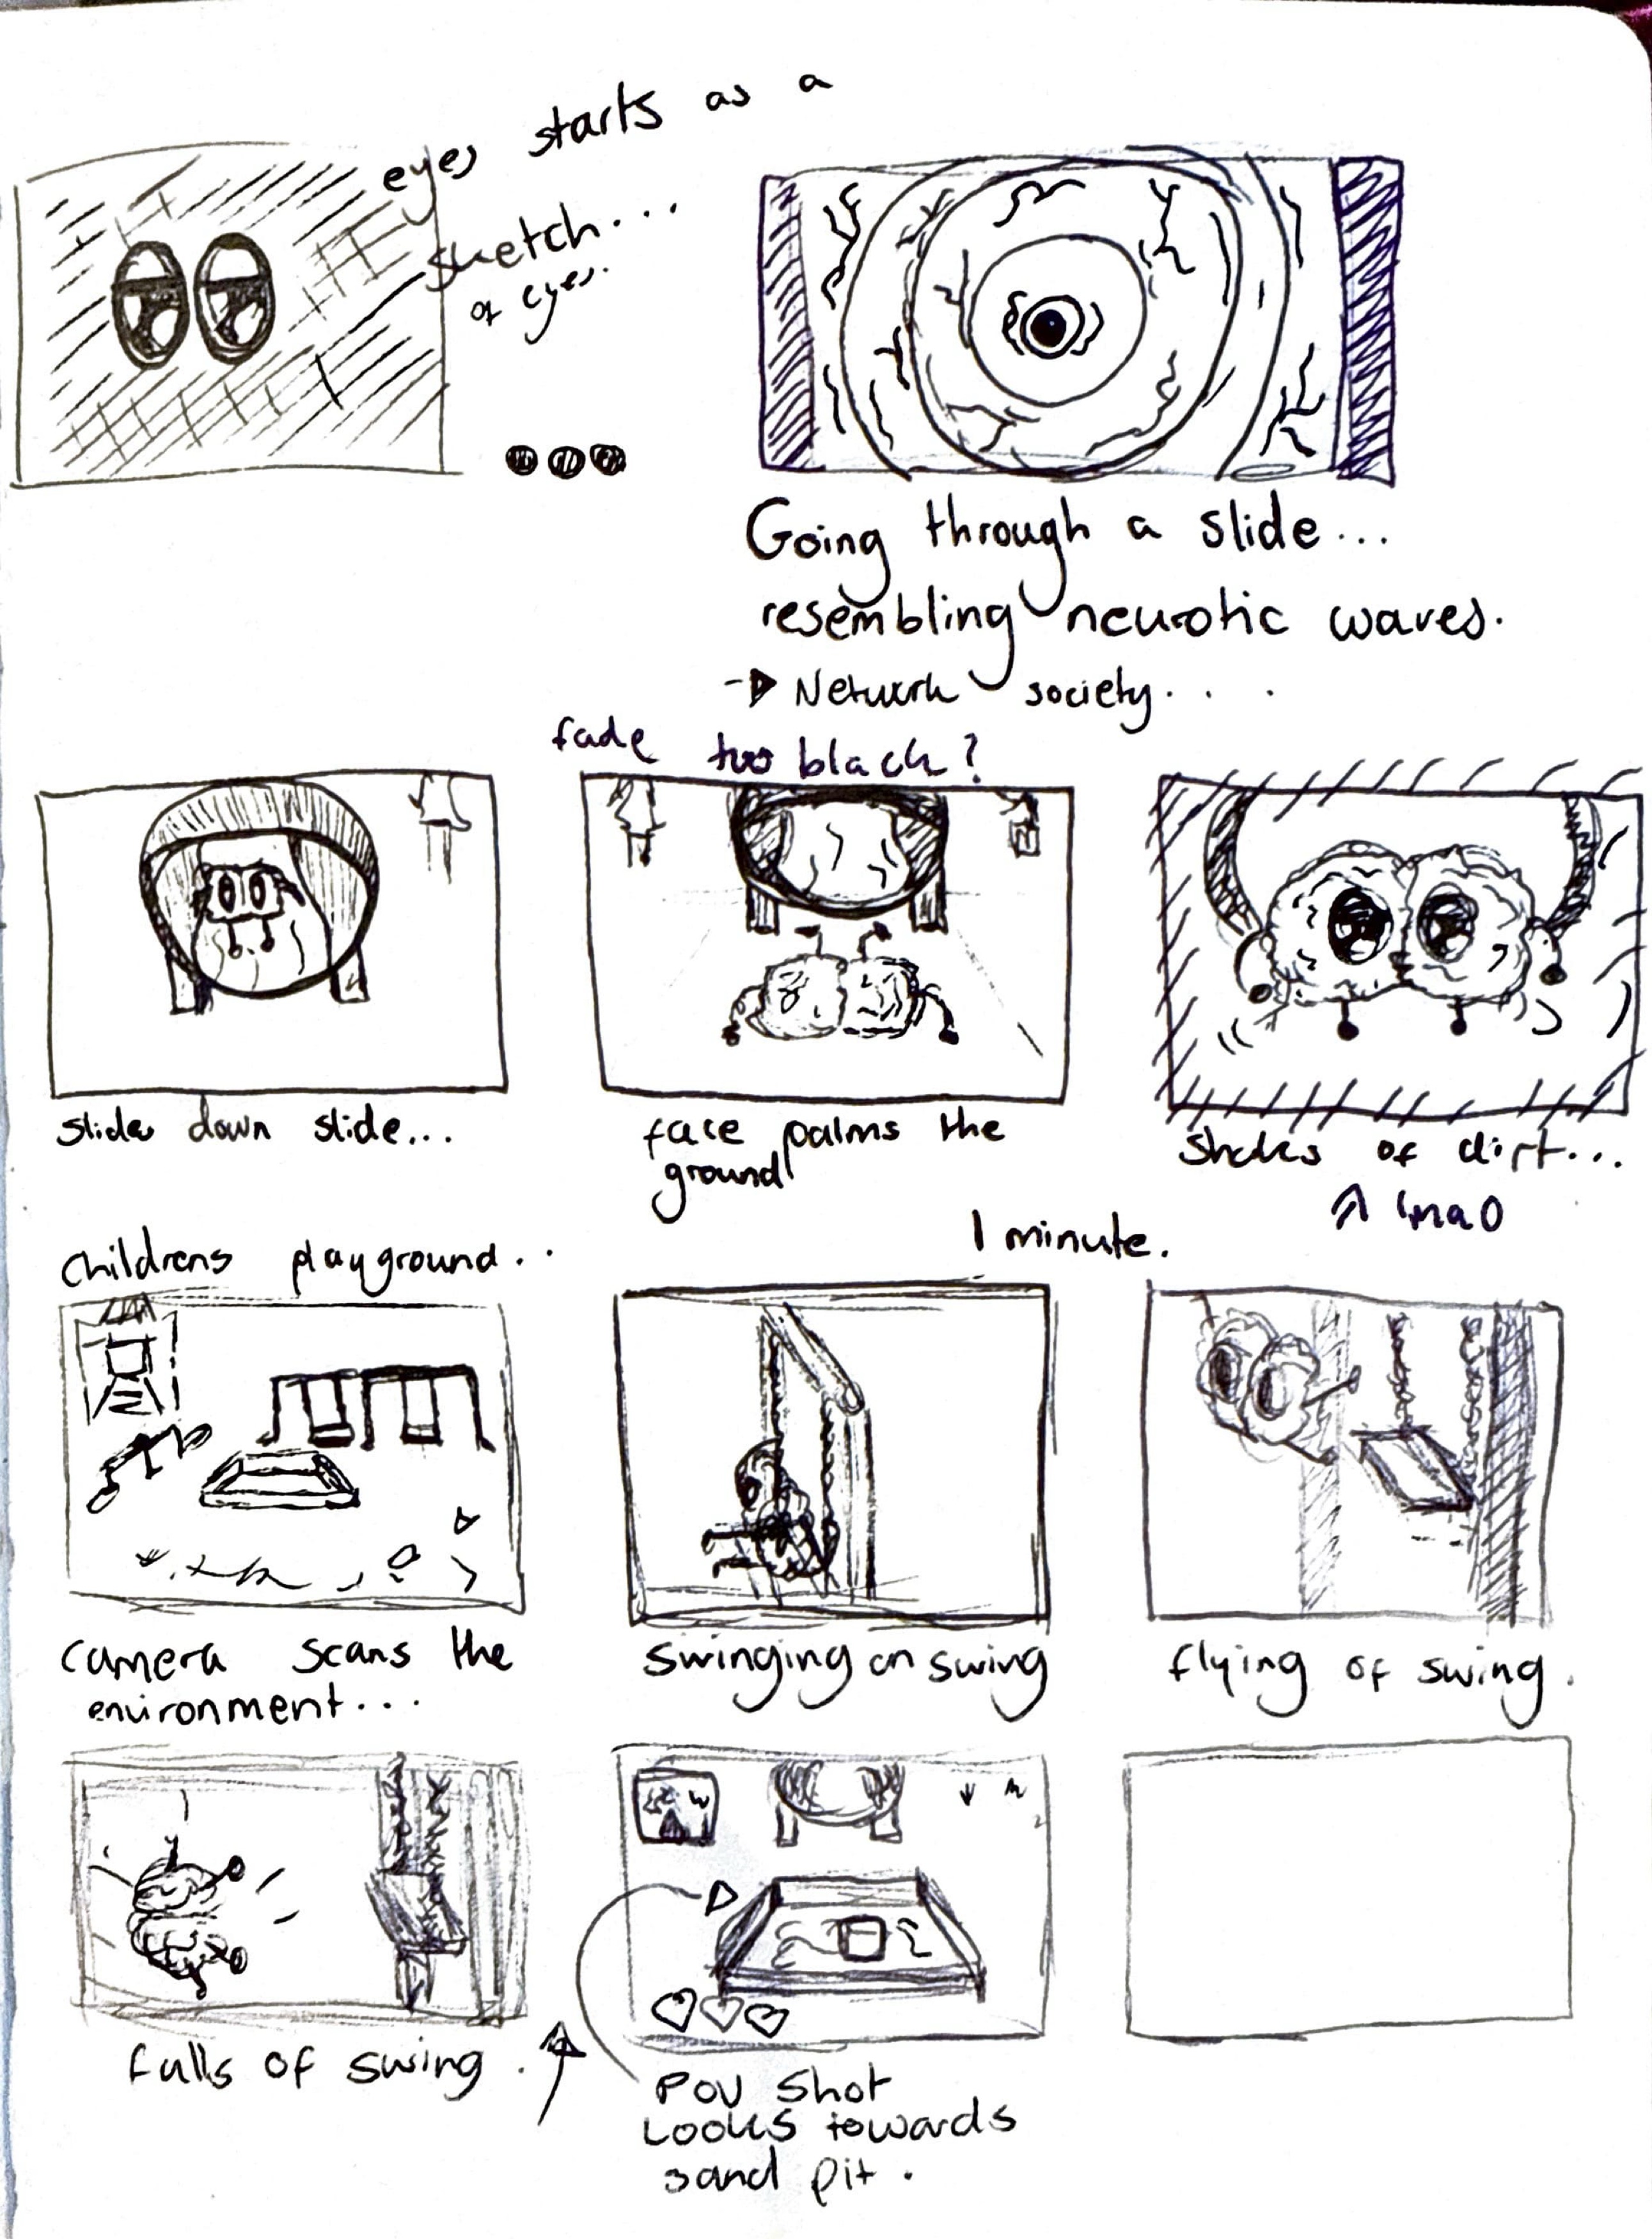 eyes starts as a
sketch...
of eyes.
Going through a slide...
resembling neurotic waves.
Network society...
fade too black?
slides down slide...
face palms the
ground
Shakes of dirt...
lmaO
1 minute.
Childrens playground..
camera scans the
environment...
Swinging on swing
flying of swing.
falls of swing.
POV Shot
Looks towards
sand pit.